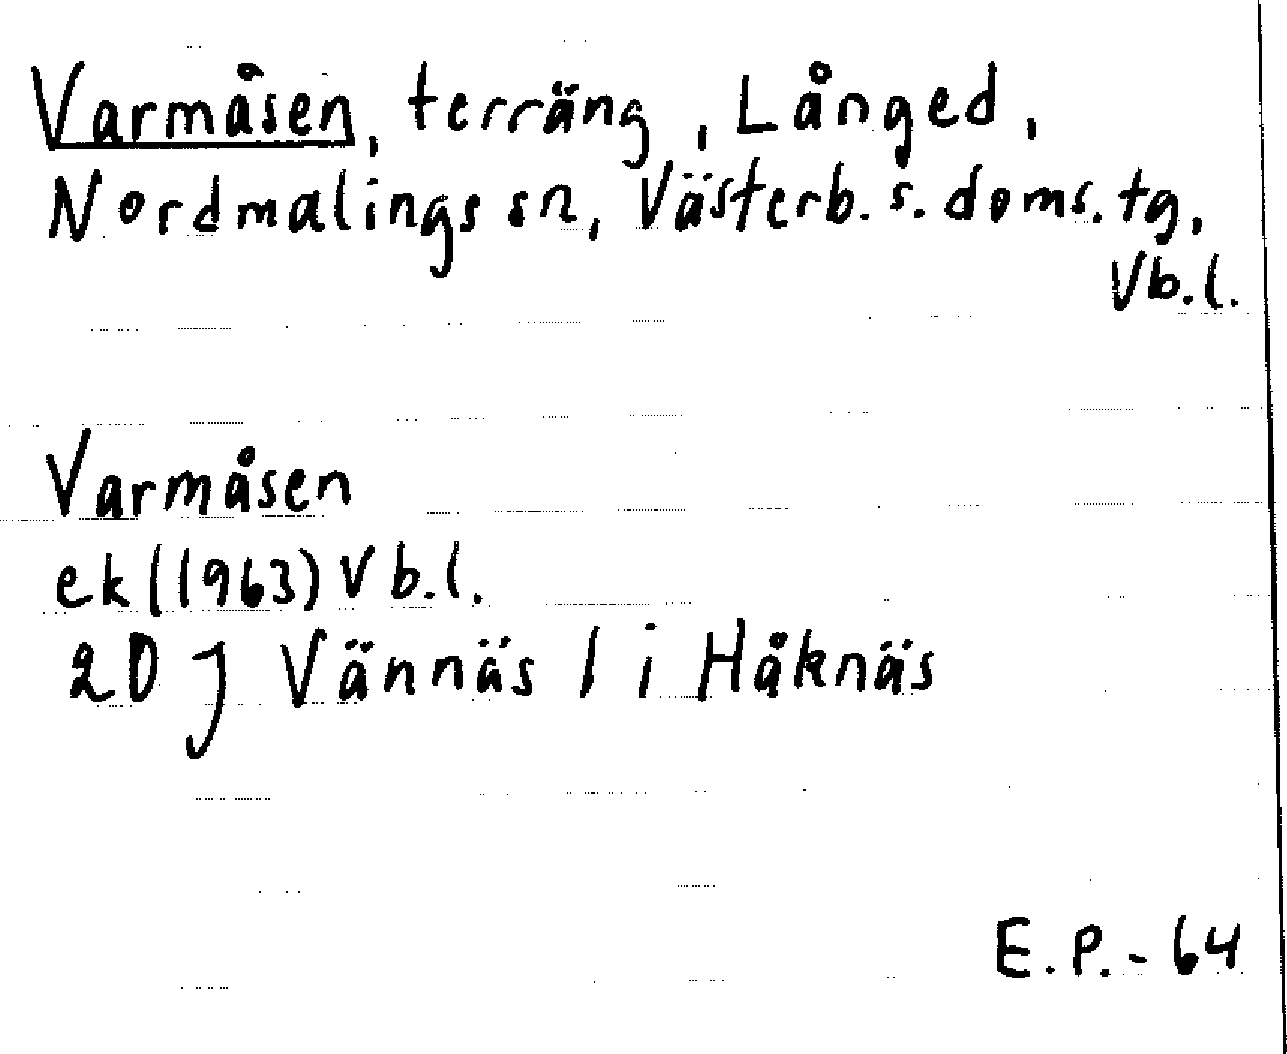 Varmåsen, terräng, Långed,
Nordmalings sn, Västerb. s. doms. tg,
Vb.l.
Varmåsen
ek (1963) Vb.l.
20 J Vännäs 1 i Håknäs
E.P.-64